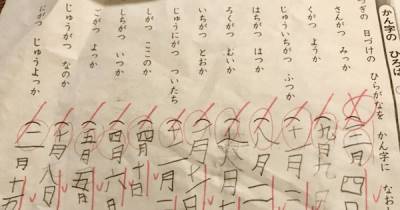 かん字の ひろば
つぎの 日づけの ひらがなを かん字に なおし
さんがつ みっか
(三月四
くがつ ようか
(九月九
じゅういちがつ ふつか
(十一月
はちがつ はつか
(八月二
ろくがつ むいか
いちがつ とおか
じゅうにがつ ついたち
しがつ ここのか
(四月十日
しちがつ いつか
(四月六日
ごがつ よっか
(五月五日
じゅうがつ なのか
(十月八日
にがつ じゅうよっか
(二月十五